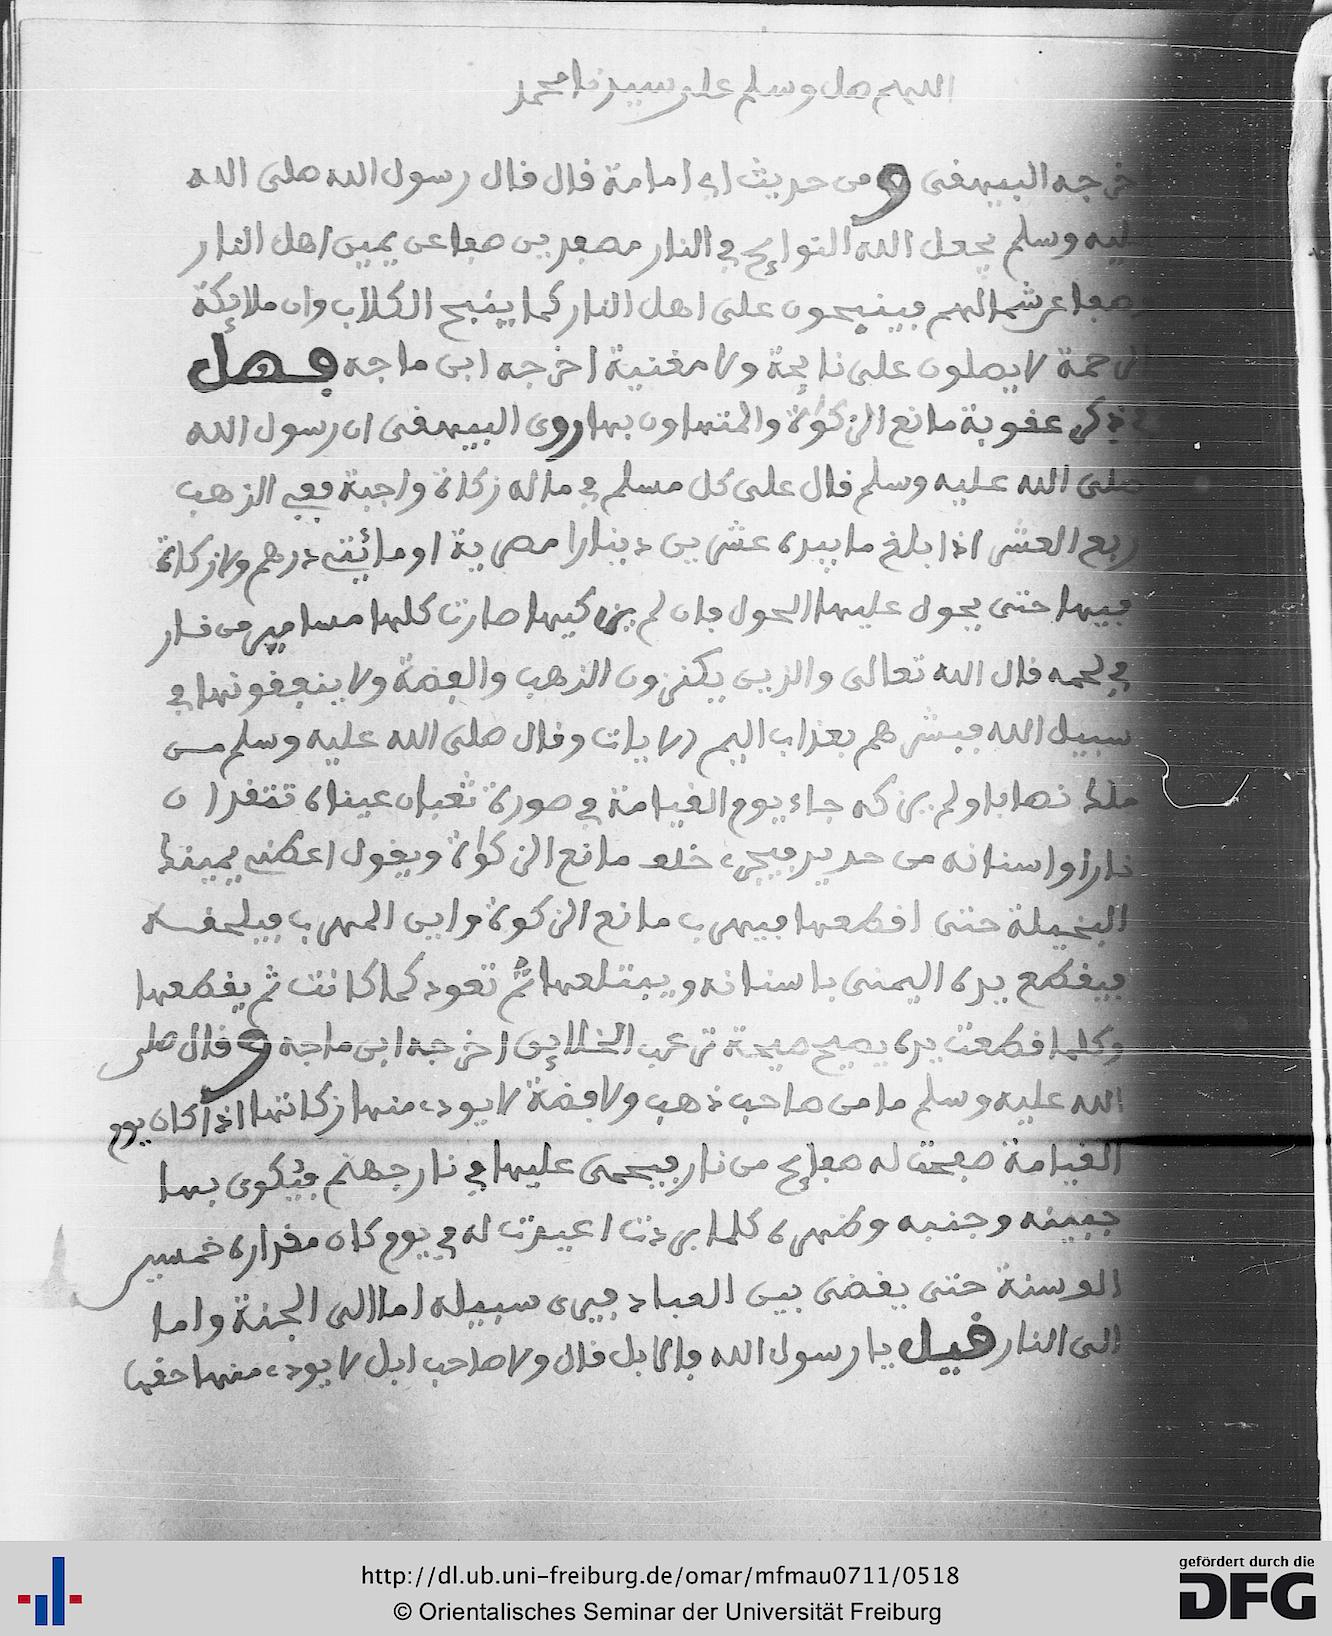 اللهم صل وسلم على سيدنا محمد
خرجه البيهقى ومن حديث ابي امامة قال قال رسول الله صلى الله
عليه وسلم يجعل الله النوايح في النار صفين صفا عن يمين اهل النار
وصفا عن شمالهم فينبحون على اهل النار كما ينبح الكلاب وان ملايكة
الرحمة لا يصلون على نايحة ولا مغنية اخرجه ابن ماجه فصل
في ذكر عقوبة مانع الزكوٰة والمتهاون بها روى البيهقى ان رسول الله
صلى الله عليه وسلم قال على كل مسلم في ماله زكاة واجبة ففي الذهب
ربع العشر اذا بلغ ما بيده عشرين دينارا مصرية او مائتي درهم ولا زكاة
فيها حتى يحول عليها الحول فان لم يزكيها صارت كلها مسامير من نار
في لحمه قال الله تعالى والذين يكنزون الذهب والفضة ولا ينفقونها في
سبيل الله فبشرهم بعذاب اليم الايات وقال صلى الله عليه وسلم من
ملك نصابا ولم يزكه جاء يوم القيامة في صورة ثعبان عيناه تتقدان
نارا واسنانه من حديد فيجري خلف مانع الزكوٰة ويقول اعطني يمينك
البخيلة حتى اقطعها فيهرب مانع الزكوة واين المهرب فيلحقه
فيقطع يده اليمنى باسنانه ويبتلعها ثم تعود كما كانت ثم يقطعها
وكلما قطعت يده يصيح صيحة ترعب الخلايق اخرجه ابن ماجه وقال صلى
الله عليه وسلم ما من صاحب ذهب ولا فضة لا يودي منها زكاتها اذا كان يوم
القيامة صفحت له صفايح من نار فيحمى عليها في نار جهنم فيكوى بها
جبينه وجنبه وظهره كلما بردت اعيدت له في يوم كان مقداره خمسين
الف سنة حتى يقضى بين العباد فيرى سبيله اما الى الجنة واما
الى النار قيل يا رسول الله فالابل قال ولا صاحب ابل لا يودي منها حقها
http://dl.ub.uni-freiburg.de/omar/mfmau0711/0518
© Orientalisches Seminar der Universität Freiburg
gefördert durch die
DFG